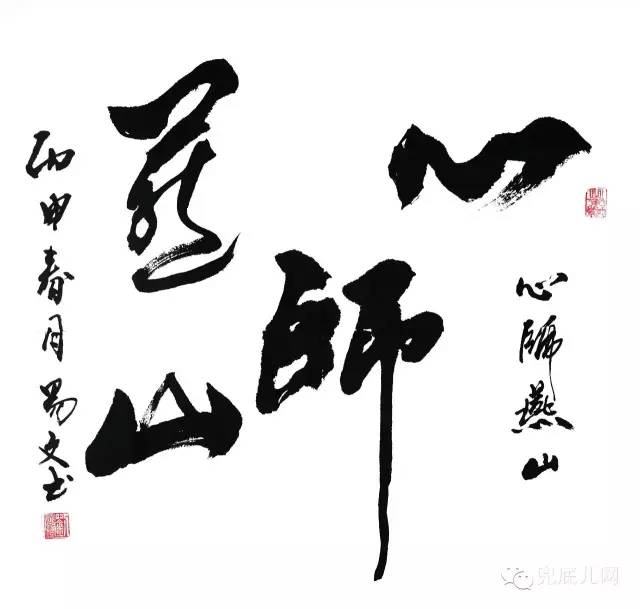 心師燕山
心師燕山
丙申春月易文书
兜底儿网